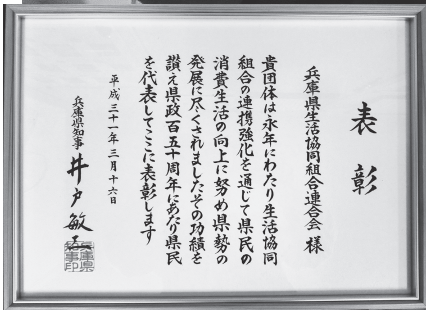 表彰
兵庫県生活協同組合連合会 様
貴団体は永年にわたり生活協同
組合の連携強化を通じて県民の
消費生活の向上に努め県勢の
発展に尽くされましたその功績を
讃え県政百五十周年にあたり県民
を代表してここに表彰します
平成三十一年三月十六日
兵庫県知事 井戸敏三
兵庫県
知事印